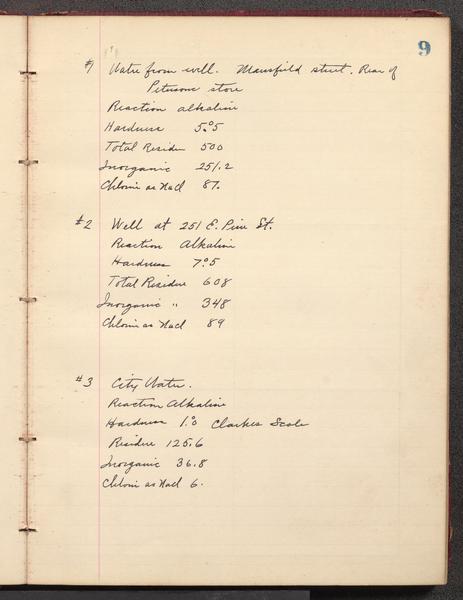 9
#1 Water from well. Mansfield street. Rear of
Petersons store
Reaction alkaline
Hardness 5.°5
Total Residue 500
Inorganic 251.2
Chlorin as NaCl 87.
#2 Well at 251 E. Pine St.
Reaction Alkaline
Hardness 7.°5
Total Residue 608
Inorganic " 348
Chlorin as NaCl 89
#3 City Water.
Reaction Alkaline
Hardness 1.°0 Clarkes Scale
Residue 125.6
Inorganic 36.8
Chlorin as NaCl 6.